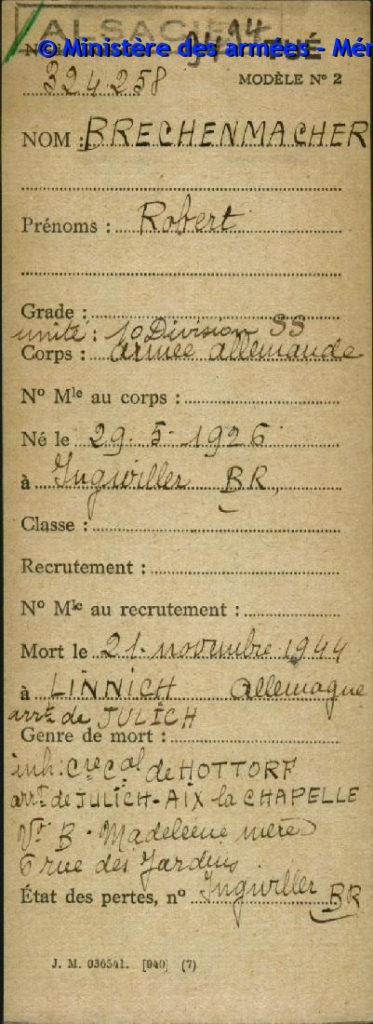 ALSACIEN
© Ministère des armées - Mém
9494 TUÉ
324.258
MODÈLE N° 2
NOM : BRECHENMACHER
Prénoms : Robert
Grade :
unité : 10 Division SS
Corps : armée allemande
N° Mle au corps :
Né le 29.5.1926
à Ingwiller BR
Classe :
Recrutement :
N° Mle au recrutement :
Mort le 21 novembre 1944
à LINNICH Allemagne
arrt de JULICH
Genre de mort :
inh : cre cal de HOTTORF
arrt de JULICH-AIX la CHAPELLE
B. Madeleine mère
6 rue des Jardins
État des pertes, n° Ingwiller BR
J. M. 036541. [940] (7)